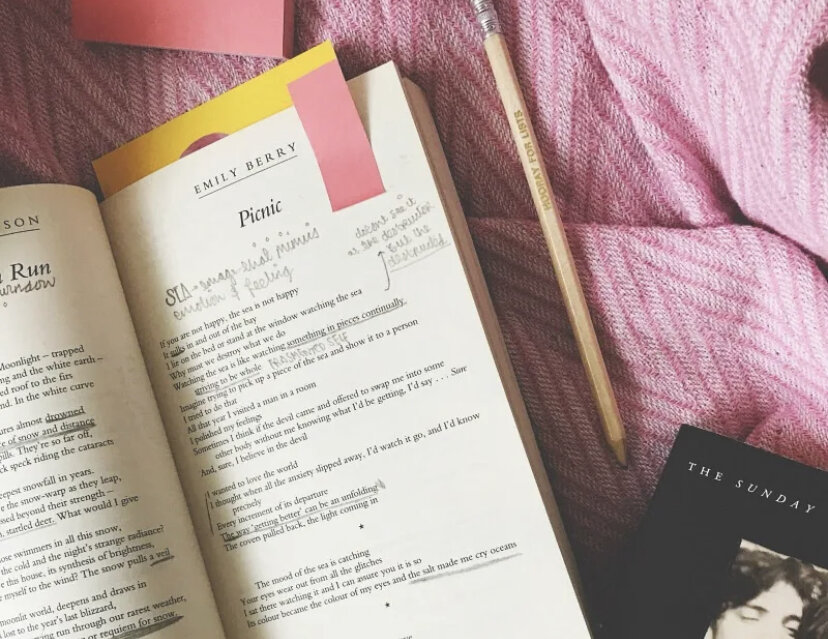 SON
Run
Moonlight – trapped
ng and the white earth –
ed roof to the firs
nd. In the white curve
ures almost drowned
e of snow and distance
pills. They're so far off,
ck speck riding the cataracts
eepest snowfall in years.
e the snow-warp as they leap,
ssed beyond their strength –
startled deer. What would I give
ose swimmers in all this snow,
the cold and the night's strange radiance?
this house, its synthesis of brightness,
myself to the wind? The snow pulls a veil
moonlit world, deepens and draws in
lost to the year's last blizzard,
ng run through our rarest weather,
or requiem for snow.
EMILY BERRY
Picnic
SEA - image that mimics
emotion & feeling
doesn't see it
as the destruction
but the
destructed
If you are not happy, the sea is not happy
It sulks in and out of the bay
I lie on the bed or stand at the window watching the sea
Why must we destroy what we do
Watching the sea is like watching something in pieces continually
striving to be whole
FRAGMENTED SELF
Imagine trying to pick up a piece of the sea and show it to a person
I tried to do that
All that year I visited a man in a room
I polished my feelings
Sometimes I think if the devil came and offered to swap me into some
other body without me knowing what I'd be getting, I'd say . . . Sure
And, sure, I believe in the devil
I wanted to love the world
I thought when all the anxiety slipped away, I'd watch it go, and I'd know
precisely
Every increment of its departure
The way 'getting better' can be an unfolding
The covers pulled back, the light coming in
*
The mood of the sea is catching
Your eyes wear out from all the glitches
I sat there watching it and I can assure you it is so
Its colour became the colour of my eyes and the salt made me cry oceans
*
HOORAY FOR LISTS
THE SUNDAY